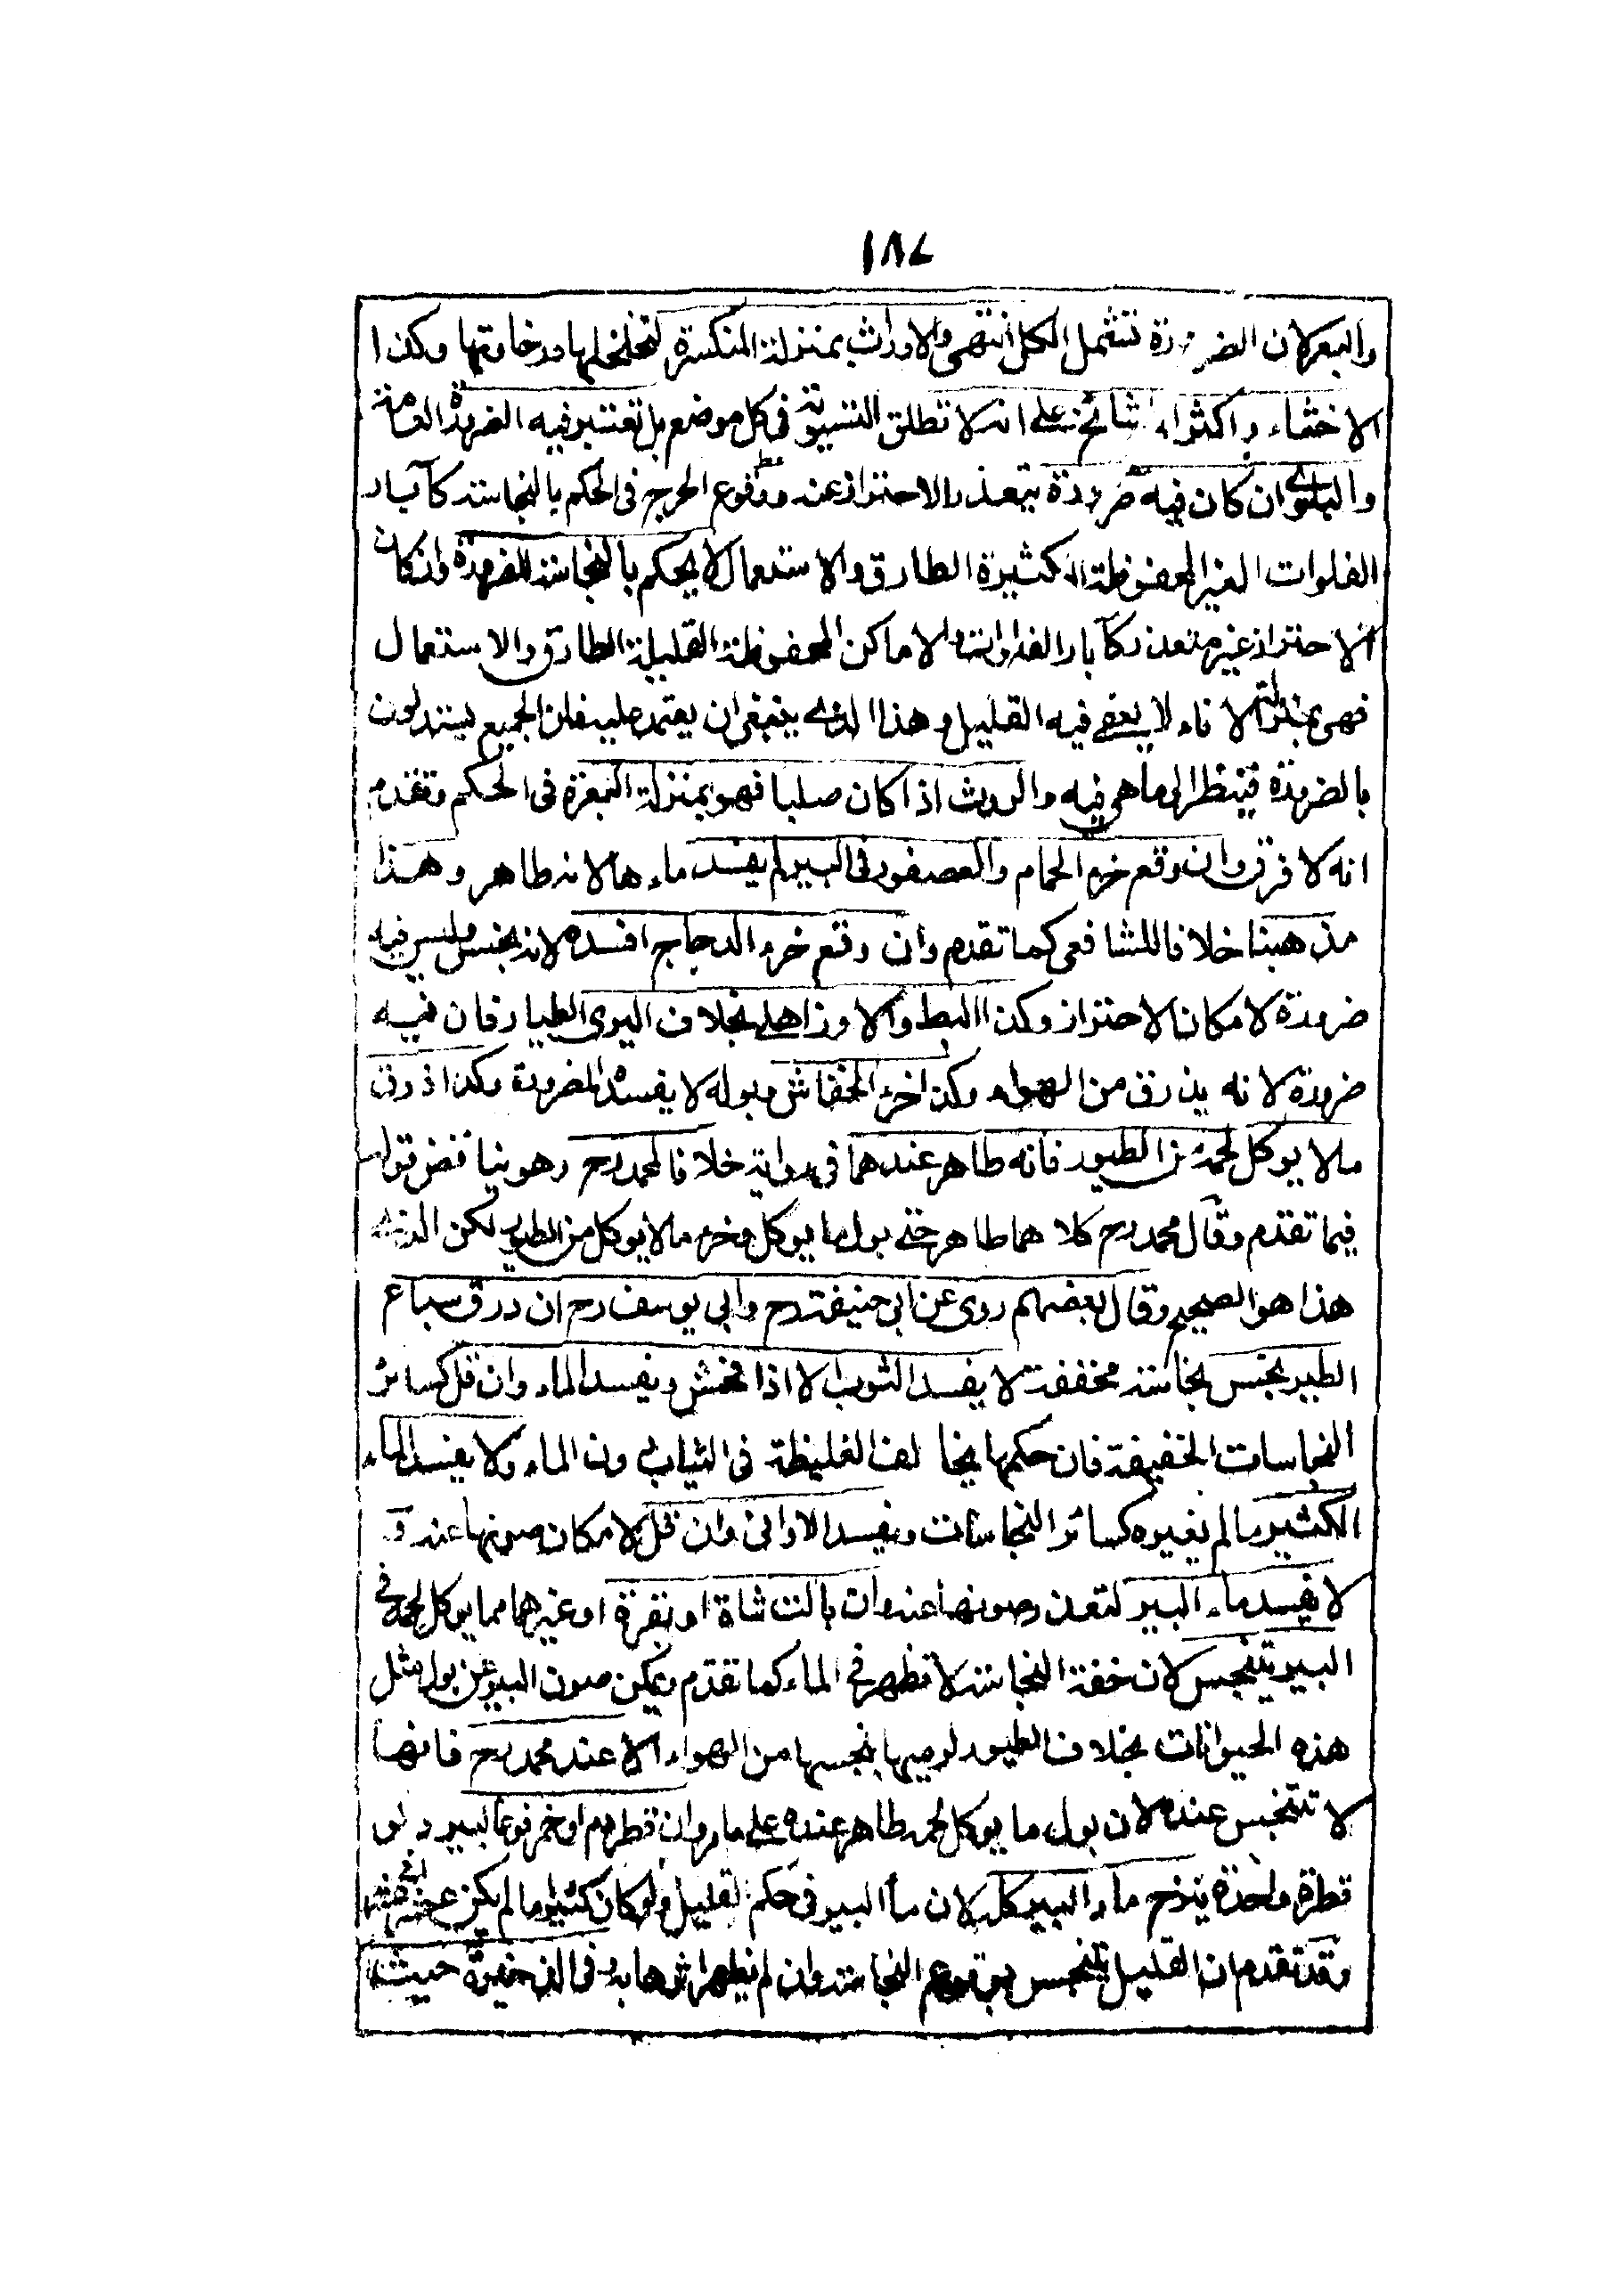 ١٨٧
والبعر لان الضرورة تشمل الكل انتهى والاوراث بمنزلة المنكسرة لتخلخلها ورخاوتها وكذا
الاخثاء واكثر المشائخ على انه لا تطلق التسوية في كل موضع بل تعتبر فيه الضرورة العامة
والبلوى ان كان فيه ضرورة يتعذر الاحتراز عنه ووقوع الحرج في الحكم بالنجاسة كآبار
الفلوات الغير المحفوظة الكثيرة الطارق والاستعمال لا يحكم بالنجاسة للضرورة وان كان
الاحتراز غير متعذر كآبار الفلوات والاماكن المحفوظة القليلة الطارق والاستعمال
فهي بمنزلة الاناء لا يعفى فيه القليل وهذا الذي ينبغي ان يعتمد عليه فان الجميع يستدلون
بالضرورة فينظر الى ما هي فيه والروث اذا كان صلبا فهو بمنزلة البعرة في الحكم وتقدم
انه لا فرق وان وقع خرء الحمام والعصفور في البير لم يفسد ماءها لانه طاهر وهذا
مذهبنا خلافا للشافعي كما تقدم وان وقع خرء الدجاج افسده لانه نجس وليس فيه
ضرورة لامكان الاحتراز وكذا البط والاوز اهلي بخلاف البري الطيار فان فيه
ضرورة لانه يذرق من الهواء وكذا خرء الخفاش وبوله لا يفسده للضرورة وكذا ذرق
ما لا يوكل لحمه من الطيور فانه طاهر عندهما في رواية خلافا لمحمد رح وهو يناقض قوله
فيما تقدم وقال محمد رح كلاهما طاهر حتى بول ما يوكل وخرء ما لا يوكل من الطيور لكن الذي
هذا هو الصحيح وقال بعضهم روى عن ابي حنيفة رح وابي يوسف رح ان ذرق سباع
الطير نجس نجاسة مخففة لا يفسد الثوب الا اذا فحش ويفسد الماء وان قل كسائر
النجاسات الخفيفة فان حكمها يخالف الغليظة في الثياب دون الماء ولا يفسد الماء
الكثير ما لم يغيره كسائر النجاسات ويفسد الاواني وان قل لامكان صونها عنه و
لا يفسد ماء البير لتعذر صونها عنه وان بالت شاة او بقرة او غيرهما مما يوكل لحمه في
البير يتنجس لان خفة النجاسة لا تظهر في الماء كما تقدم ويمكن صون البير عن بول مثل
هذه الحيوانات بخلاف الطيور لرميها نجسها من الهواء الا عند محمد رح فانها
لا تتنجس عنده لان بول ما يوكل لحمه طاهر عنده على ما مر وان قطر دم او خمر في ماء البير ولو
قطرة واحدة ينزح ماء البير كله لان ماء البير في حكم القليل ولو كان كثيرا ما لم يكن
وقد تقدم ان القليل يتنجس بوقوع النجاسة وان لم يظهر اثرها به وفي الذخيرة حيث